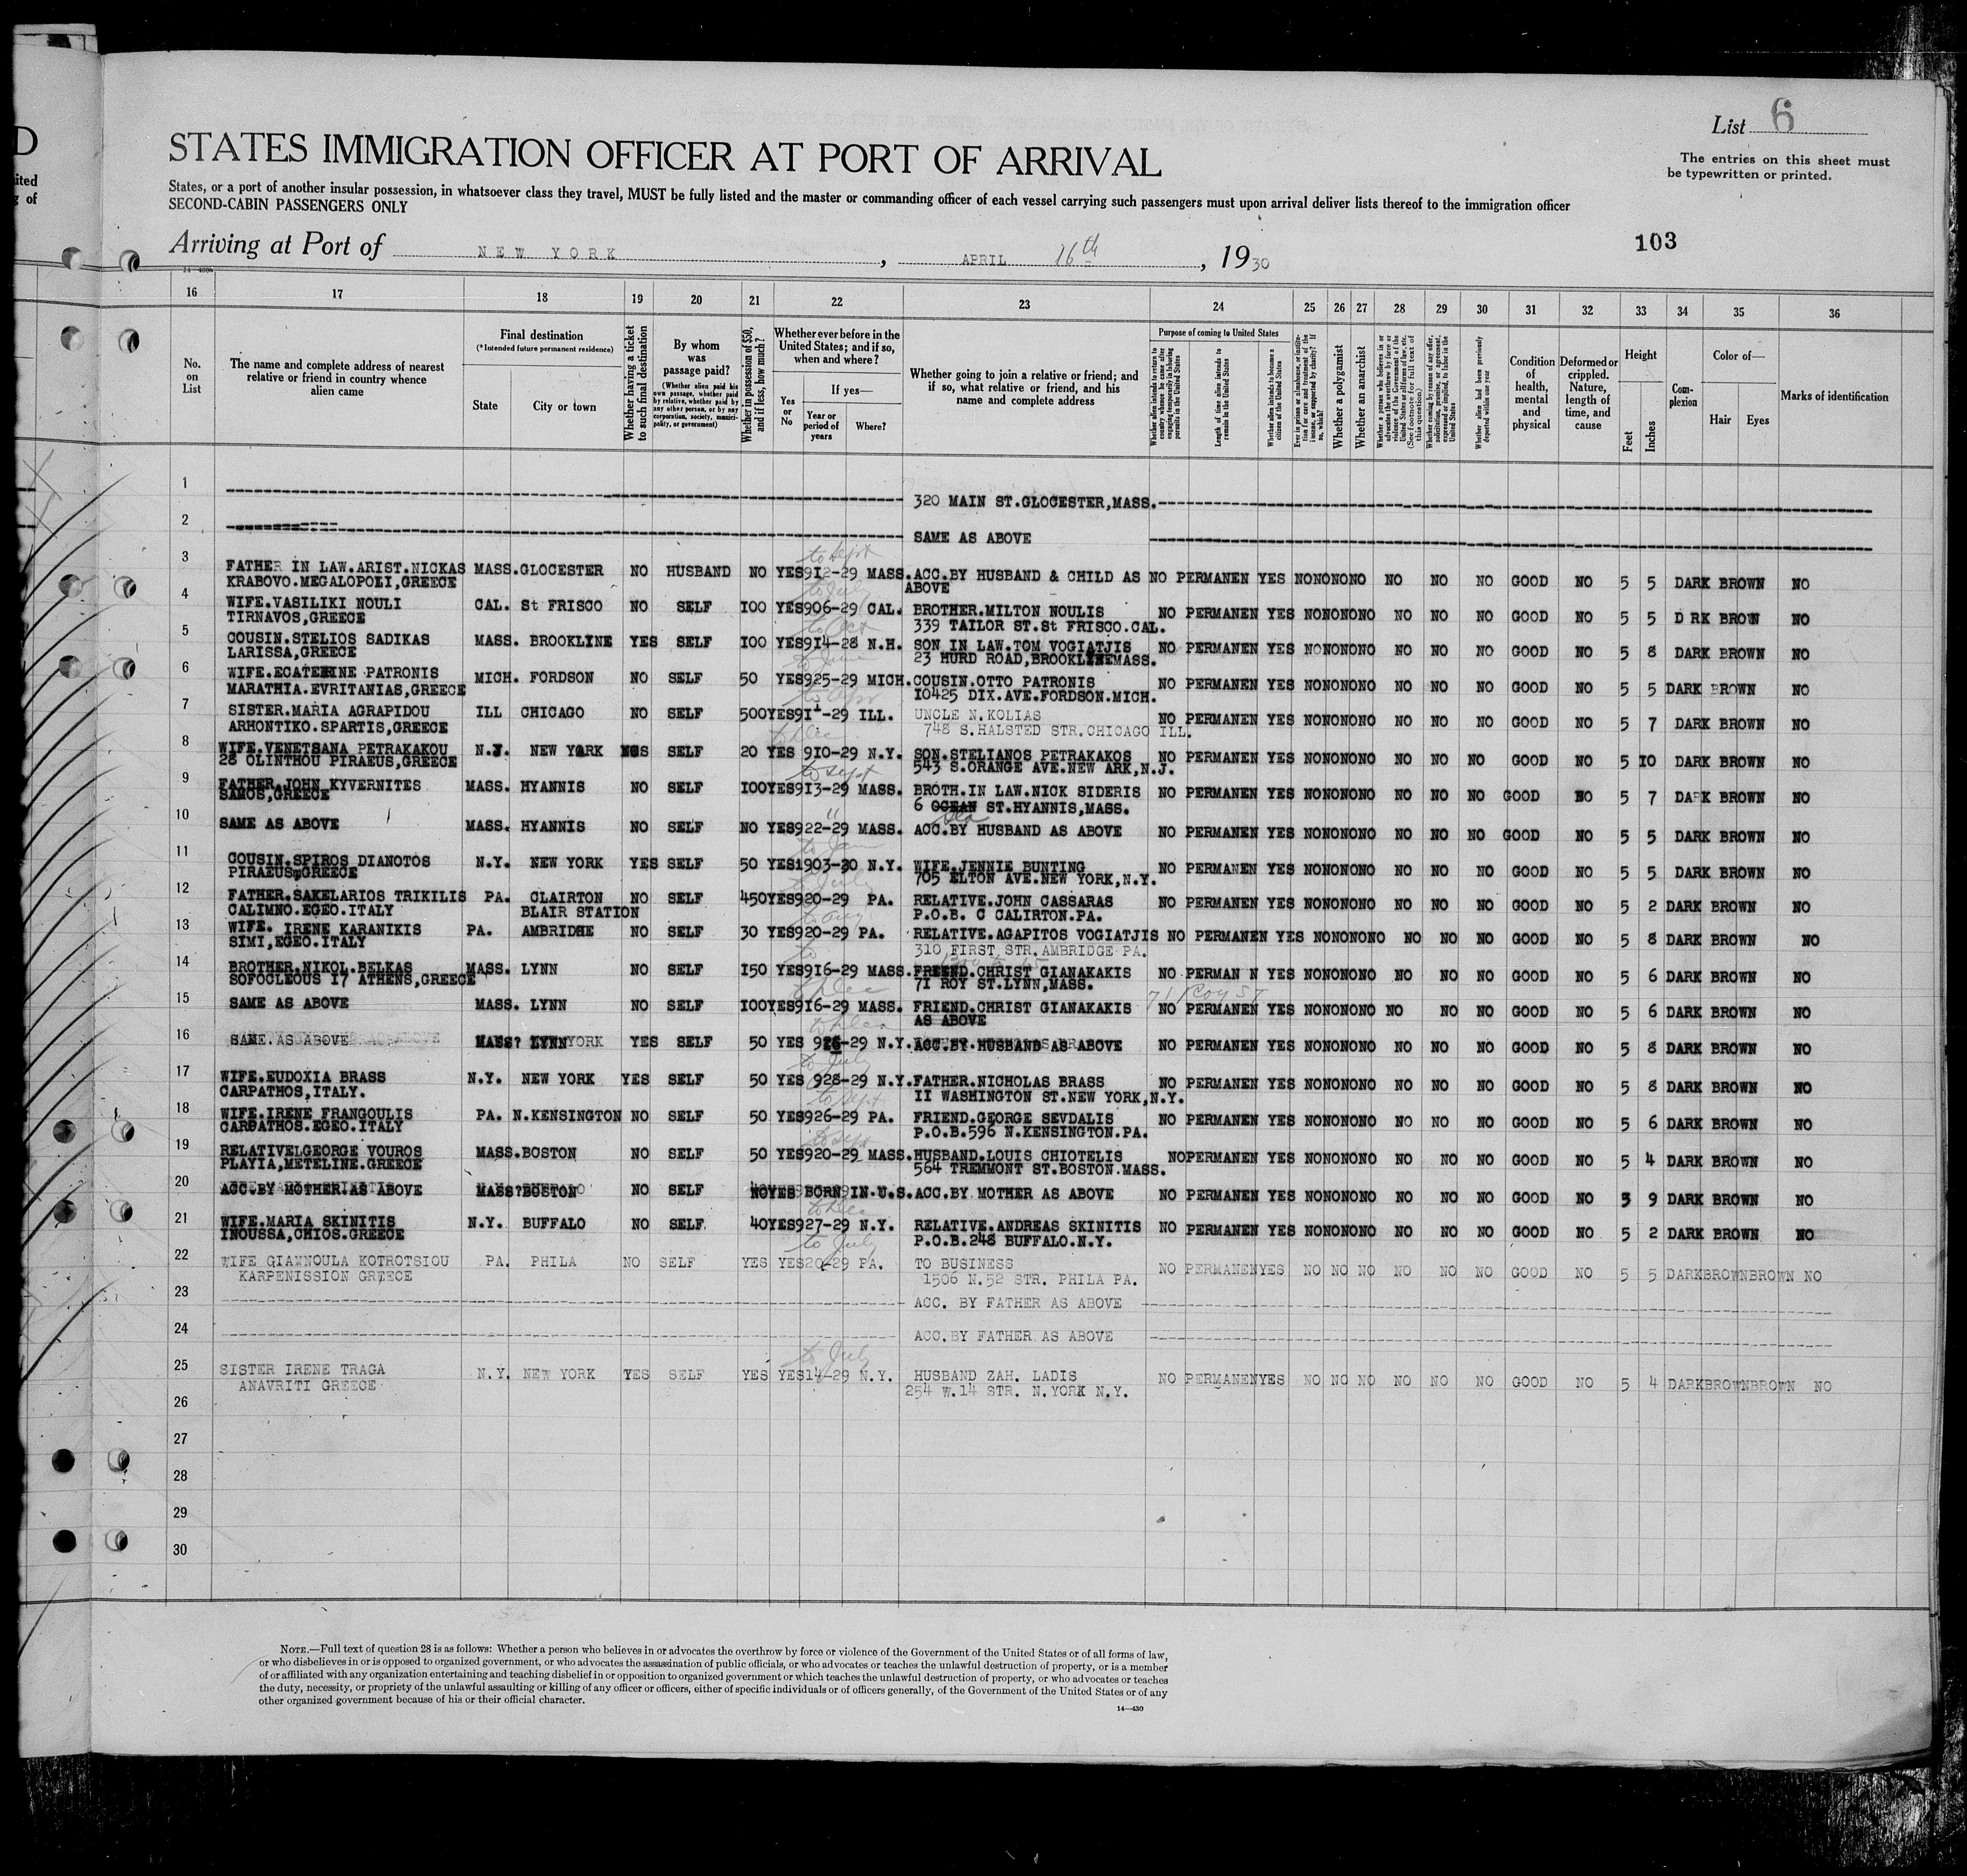 List 6
The entries on this sheet must
be typewritten or printed.
STATES IMMIGRATION OFFICER AT PORT OF ARRIVAL
States, or a port of another insular possession, in whatsoever class they travel, MUST be fully listed and the master or commanding officer of each vessel carrying such passengers must upon arrival deliver lists thereof to the immigration officer
SECOND-CABIN PASSENGERS ONLY
Arriving at Port of NEW YORK, APRIL 16th, 1930
103
16 17 18 19 20 21 22 23 24 25 26 27 28 29 30 31 32 33 34 35 36
No. on List
The name and complete address of nearest relative or friend in country whence alien came
Final destination
(*Intended future permanent residence)
State
City or town
Whether having a ticket to such final destination
By whom was passage paid?
(Whether alien paid his own passage, whether paid by relative, whether paid by any other person, or by any corporation, society, municipality, or government)
Whether in possession of $50, and if less, how much?
Whether ever before in the United States; and if so, when and where?
If yes—
Yes or No
Year or period of years
Where?
Whether going to join a relative or friend; and if so, what relative or friend, and his name and complete address
Purpose of coming to United States
Whether alien intends to return to country whence he came after engaging temporarily in laboring pursuits in the United States
Length of time alien intends to remain in the United States
Whether alien intends to become a citizen of the United States
Whether a polygamist
Whether an anarchist
Whether alien had been previously deported within one year
Condition of health, mental and physical
Deformed or crippled. Nature, length of time, and cause
Height
Feet
Inches
Complexion
Color of—
Hair
Eyes
Marks of identification
1 320 MAIN ST.GLOCESTER,MASS.
2 SAME AS ABOVE
3 FATHER IN LAW.ARIST.NICKAS MASS.GLOCESTER NO HUSBAND NO YES912-29 MASS.ACC.BY HUSBAND & CHILD AS NO PERMANEN YES NONONONO NO NO NO GOOD NO 5 5 DARK BROWN NO
KRABOVO.MEGALOPOLI,GREECE ABOVE
4 WIFE.VASILIKI NOULI CAL. St FRISCO NO SELF I00 YES906-29 CAL. BROTHER.MILTON NOULIS NO PERMANEN YES NONONONO NO NO NO GOOD NO 5 5 D RK BROWN NO
TIRNAVOS,GREECE 339 TAILOR ST.St FRISCO.CAL.
5 COUSIN.STELIOS SADIKAS MASS. BROOKLINE YES SELF I00 YES9I4-28 N.H. SON IN LAW.TOM VOGIATJIS NO PERMANEN YES NONONONO NO NO NO GOOD NO 5 8 DARK BROWN NO
LARISSA,GREECE 23 HURD ROAD,BROOKLINEMASS.
6 WIFE.ECATERINE PATRONIS MICH. FORDSON NO SELF 50 YES925-29 MICH.COUSIN.OTTO PATRONIS NO PERMANEN YES NONONONO NO NO NO GOOD NO 5 5 DARK BROWN NO
MARATHIA.EVRITANIAS,GREECE I0425 DIX.AVE.FORDSON.MICH.
7 SISTER.MARIA AGRAPIDOU ILL CHICAGO NO SELF 500YES9I -29 ILL. UNCLE N.KOLIAS NO PERMANEN YES NONONONO NO NO NO GOOD NO 5 7 DARK BROWN NO
ARHONTIKO.SPARTIS,GREECE 748 S.HALSTED STR.CHICAGO ILL.
8 WIFE.VENETSANA PETRAKAKOU N.J. NEW YORK SELF 20 YES 9I0-29 N.Y. SON.STELIANOS PETRAKAKOS NO PERMANEN YES NONONONO NO NO NO GOOD NO 5 I0 DARK BROWN NO
28 OLINTHOU PIRAEUS,GREECE 543 S.ORANGE AVE.NEW ARK,N.J.
9 FATHER.JOHN KYVERNITES MASS. HYANNIS NO SELF I00YES9I3-29 MASS. BROTH.IN LAW.NICK SIDERIS NO PERMANEN YES NONONONO NO NO NO GOOD NO 5 7 DARK BROWN NO
SAMOS,GREECE 6 OCEAN Sea ST.HYANNIS,MASS.
10 SAME AS ABOVE MASS. HYANNIS NO SELF NO YES922-29 MASS. ACC.BY HUSBAND AS ABOVE NO PERMANEN YES NONONONO NO NO NO GOOD NO 5 5 DARK BROWN NO
11 COUSIN.SPIROS DIANOTOS N.Y. NEW YORK YES SELF 50 YES1903-30 N.Y. WIFE.JENNIE BUNTING NO PERMANEN YES NONONONO NO NO NO GOOD NO 5 5 DARK BROWN NO
PIRAEUS,GREECE 705 ELTON AVE.NEW YORK,N.Y.
12 FATHER.SAKELARIOS TRIKILIS PA. CLAIRTON NO SELF 450YES920-29 PA. RELATIVE.JOHN CASSARAS NO PERMANEN YES NONONONO NO NO NO GOOD NO 5 2 DARK BROWN NO
CALIMNO.EGEO.ITALY BLAIR STATION P.O.B. C CALIRTON.PA.
13 WIFE. IRENE KARANIKIS PA. AMBRIDHE NO SELF 30 YES920-29 PA. RELATIVE.AGAPITOS VOGIATJIS NO PERMANEN YES NONONONO NO NO NO GOOD NO 5 8 DARK BROWN NO
SIMI,EGEO.ITALY 310 FIRST STR.AMBRIDGE PA.
14 BROTHER.NIKOL.BELKAS MASS. LYNN NO SELF I50 YES9I6-29 MASS.FRIEND.CHRIST GIANAKAKIS NO PERMAN N YES NONONONO NO NO NO GOOD NO 5 6 DARK BROWN NO
SOFOCLEOUS I7 ATHENS,GREECE 7I ROY ST.LYNN,MASS.
15 SAME AS ABOVE MASS. LYNN NO SELF I00YES9I6-29 MASS. FRIEND.CHRIST GIANAKAKIS 71 Roy ST NO PERMANEN YES NONONONO NO NO NO GOOD NO 5 6 DARK BROWN NO
AS ABOVE
16 SAME.AS ABOVE MASS? LYNN YES SELF 50 YES -29 N.Y.ACC.BY HUSBAND AS ABOVE NO PERMANEN YES NONONONO NO NO NO GOOD NO 5 8 DARK BROWN NO
17 WIFE.EUDOXIA BRASS N.Y. NEW YORK YES SELF 50 YES 928-29 N.Y.FATHER.NICHOLAS BRASS NO PERMANEN YES NONONONO NO NO NO GOOD NO 5 8 DARK BROWN NO
CARPATHOS,ITALY. II WASHINGTON ST.NEW YORK,N.Y.
18 WIFE.IRENE FRANGOULIS PA. N.KENSINGTON NO SELF 50 YES926-29 PA. FRIEND.GEORGE SEVDALIS NO PERMANEN YES NONONONO NO NO NO GOOD NO 5 6 DARK BROWN NO
CARPATHOS.EGEO.ITALY P.O.B.596 N.KENSINGTON.PA.
19 RELATIVELGEORGE VOUROS MASS.BOSTON NO SELF 50 YES920-29 MASS.HUSBAND.LOUIS CHIOTELIS NOPERMANEN YES NONONONO NO NO NO GOOD NO 5 4 DARK BROWN NO
PLAYIA,METELINE.GREECE 564 TREMMONT ST.BOSTON.MASS.
20 ACC.BY MOTHER.AS ABOVE MASS?BOSTON NO SELF NOYES BORN IN U.S.ACC.BY MOTHER AS ABOVE NO PERMANEN YES NONONONO NO NO NO GOOD NO 3 9 DARK BROWN NO
21 WIFE.MARIA SKINITIS N.Y. BUFFALO NO SELF. 40YES927-29 N.Y. RELATIVE.ANDREAS SKINITIS NO PERMANEN YES NONONONO NO NO NO GOOD NO 5 2 DARK BROWN NO
INOUSSA,CHIOS.GREECE P.O.B.248 BUFFALO.N.Y.
22 WIFE GIANNOULA KOTROTSIOU PA. PHILA NO SELF YES YES20-29 PA. TO BUSINESS NO PERMANENYES NO NO NO NO NO NO GOOD NO 5 5 DARKBROWNBROWN NO
KARPENISSION GREECE 1506 N.52 STR. PHILA PA.
23 ACC. BY FATHER AS ABOVE
24 ACC.BY FATHER AS ABOVE
25 SISTER IRENE TRAGA N.Y. NEW YORK YES SELF YES YES14-29 N.Y. HUSBAND ZAH. LADIS NO PERMANENYES NO NO NO NO NO NO GOOD NO 5 4 DARKBROWNBROWN NO
ANAVRITI GREECE 254 W.14 STR. N.YORK N.Y.
26
27
28
29
30
NOTE.—Full text of question 28 is as follows: Whether a person who believes in or advocates the overthrow by force or violence of the Government of the United States or of all forms of law,
or who disbelieves in or is opposed to organized government, or who advocates the assassination of public officials, or who advocates or teaches the unlawful destruction of property, or is a member
of or affiliated with any organization entertaining and teaching disbelief in or opposition to organized government or which teaches the unlawful destruction of property, or who advocates or teaches
the duty, necessity, or propriety of the unlawful assaulting or killing of any officer or officers, either of specific individuals or of officers generally, of the Government of the United States or of any
other organized government because of his or their official character.
14—430